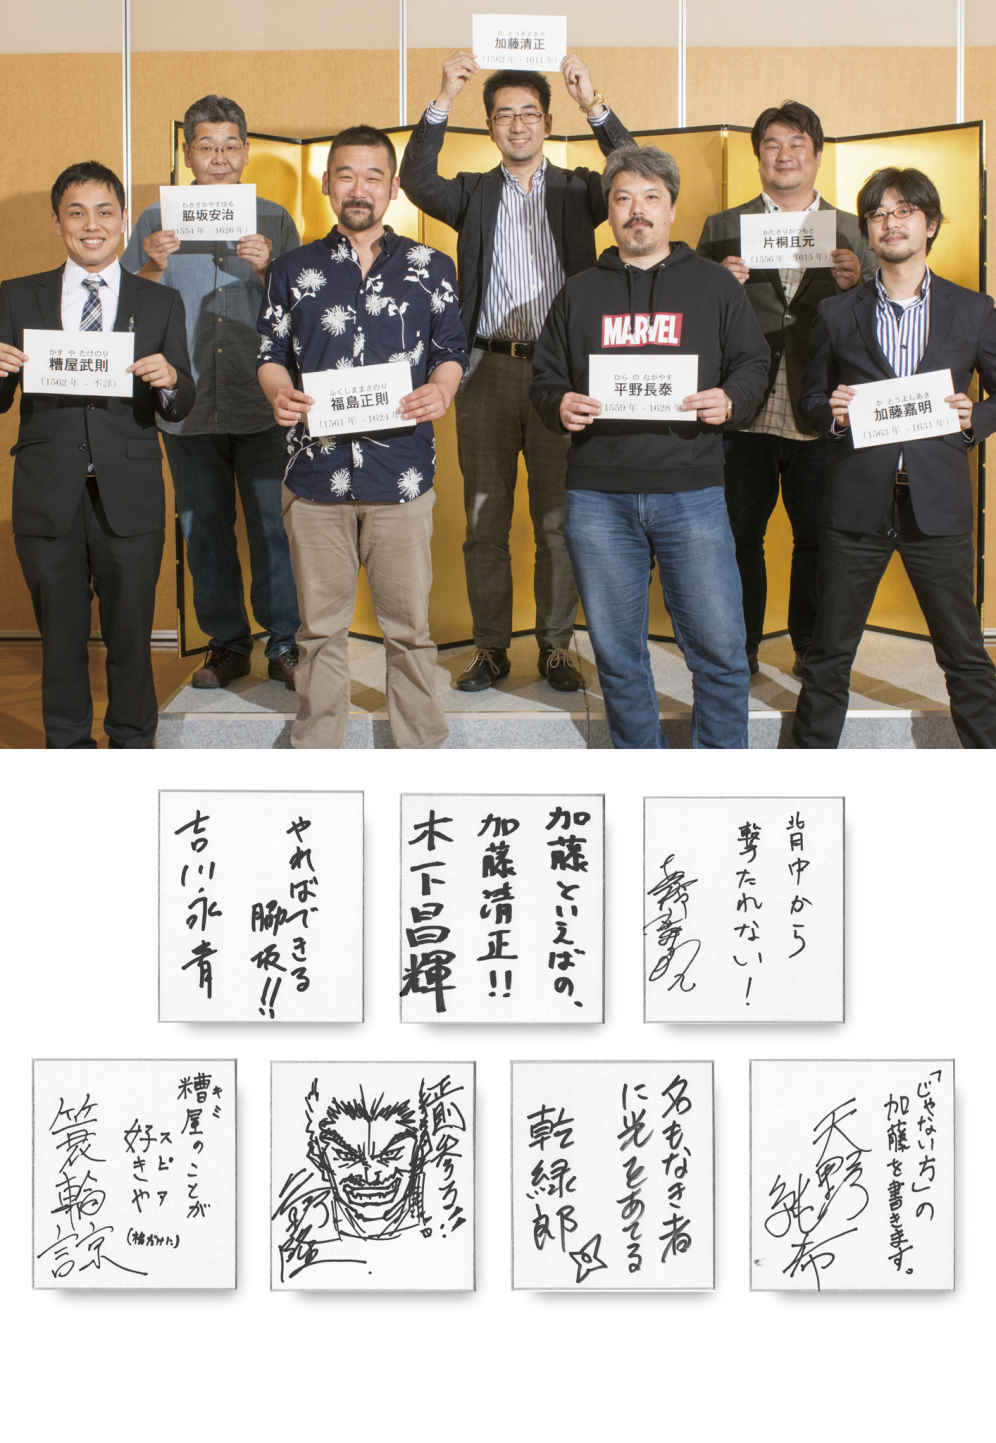 か とうきよまさ
加藤清正
(1562年 - 1611年)
わきざかやすはる
脇坂安治
1554年 - 1626年)
かたぎりかつもと
片桐且元
(1556年 - 1615年)
かす や たけのり
糟屋武則
(1562年 - 不詳)
ふくしままさのり
福島正則
(1561年 - 1624年
ひら の ながやす
平野長泰
1559年 - 1628年
か とうよしあき
加藤嘉明
(1563年 - 1631年)
MARVEL
やればできる
脇坂!!
吉川永青
加藤といえばの、
加藤清正!!
木下昌輝
背中から
撃たれない!
糟屋のことが
キミ
好きや
スピア
(槍だけに)
簑輪諒
推参う!!
名もなき者
に光をあてる
乾緑郎
「じゃない方」の
加藤を書きます。
天野純希